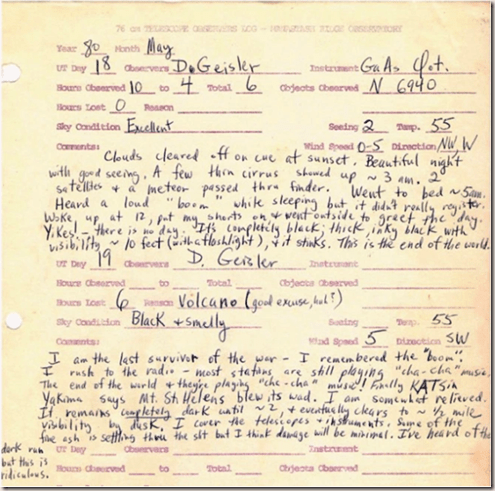 76 cm TELESCOPE OBSERVERS LOG - MANASTASH RIDGE OBSERVATORY
Year 80 Month May
UT Day 18 Observers D. Geisler Instrument GaAs Phot.
Hours Observed 10 to 4 Total 6 Objects Observed N 6940
Hours Lost 0 Reason
Sky Condition Excellent Seeing 2 Temp. 55
Comments: Wind Speed 0-5 Direction NW, W
Clouds cleared off on cue at sunset. Beautiful night
with good seeing. A few thin cirrus showed up ~ 3 am. 2
satellites & a meteor passed thru finder. Went to bed ~ 5am.
Heard a loud "boom" while sleeping but it didn't really register.
Woke up at 12, put my shorts on & went outside to greet the day.
Yikes! - there is no day. It's completely black; thick, inky black with
visibility ~ 10 feet (with a flashlight), & it stinks. This is the end of the world.
UT Day 19 Observers D. Geisler Instrument
Hours Observed to Total Objects Observed
Hours Lost 6 Reason Volcano (good excuse, huh?)
Sky Condition Black & smelly Seeing Temp. 55
Comments: Wind Speed 5 Direction SW
I am the last survivor of the war - I remembered the "boom".
I rush to the radio - most stations are still playing "cha-cha" music.
The end of the world & they're playing "cha-cha" music! Finally KATS in
Yakima says Mt. St. Helens blew its wad. I am somewhat relieved.
It remains completely dark until ~ 2, & eventually clears to ~ 1/2 mile
visibility by dusk. I cover the telescopes & instruments. Some of the
fine ash is settling thru the slit but I think damage will be minimal. I've heard of the
dark run
but this is
ridiculous.
UT Day Observers Instrument
Hours Observed to Total Objects Observed